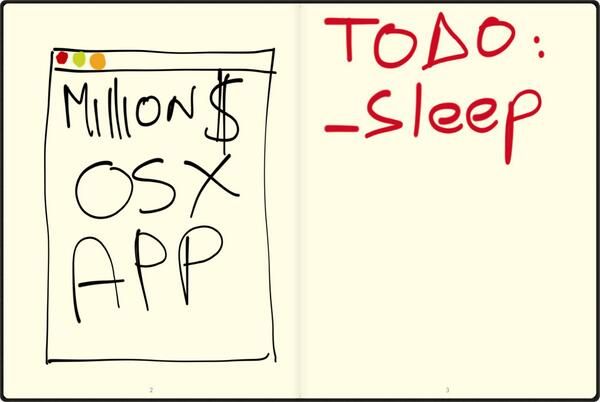 MIllION$
OSX
APP
2
TODO:
-Sleep
3